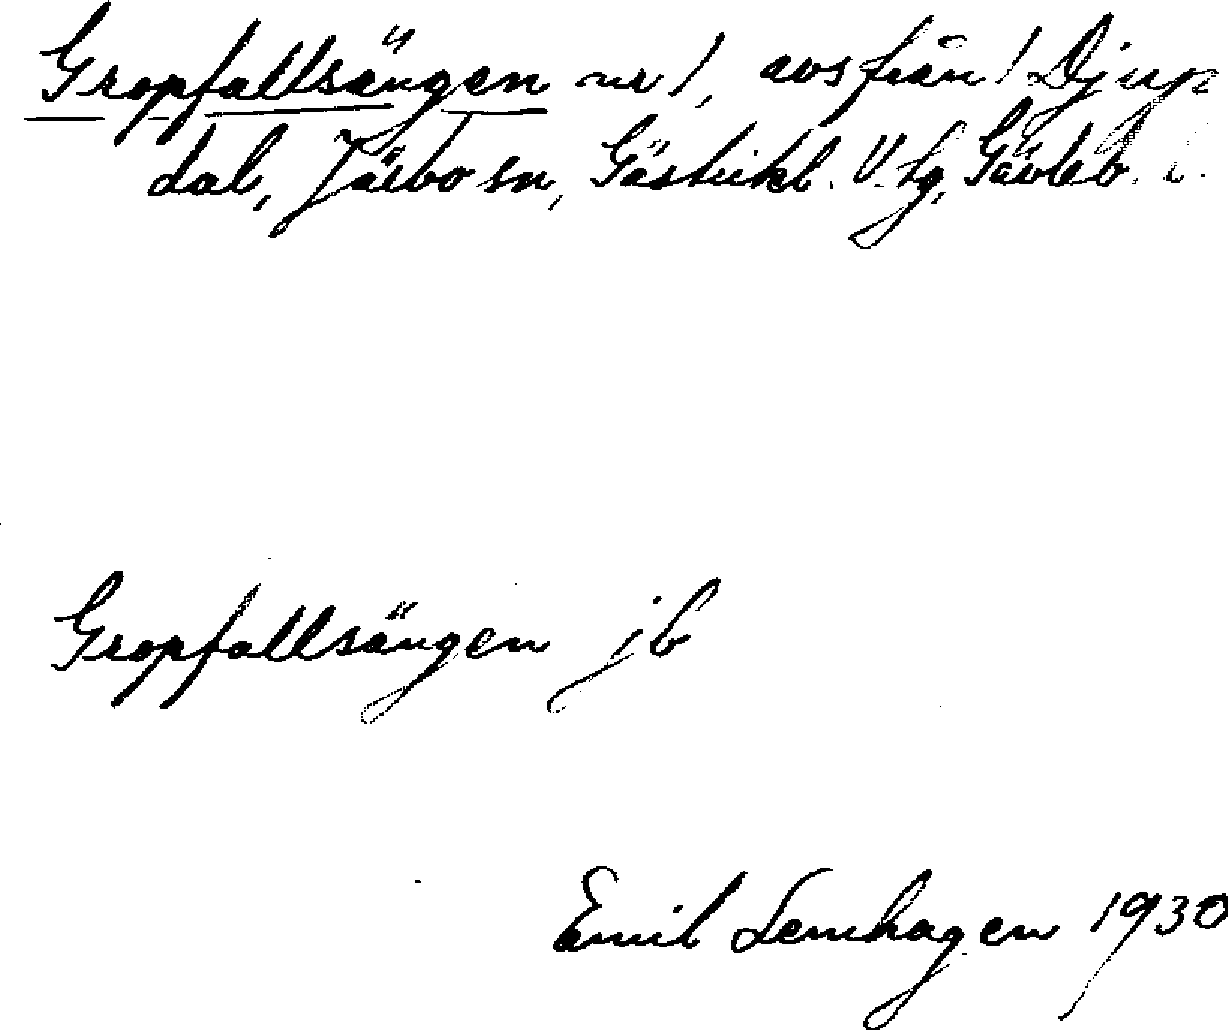 Gropfallsängen nr 1, avs från 1 Djup-
dal, Järbo sn, Gästrikl. V. tg, Gävleb. l.
Gropfallsängen jb
Emil Lemhagen 1930